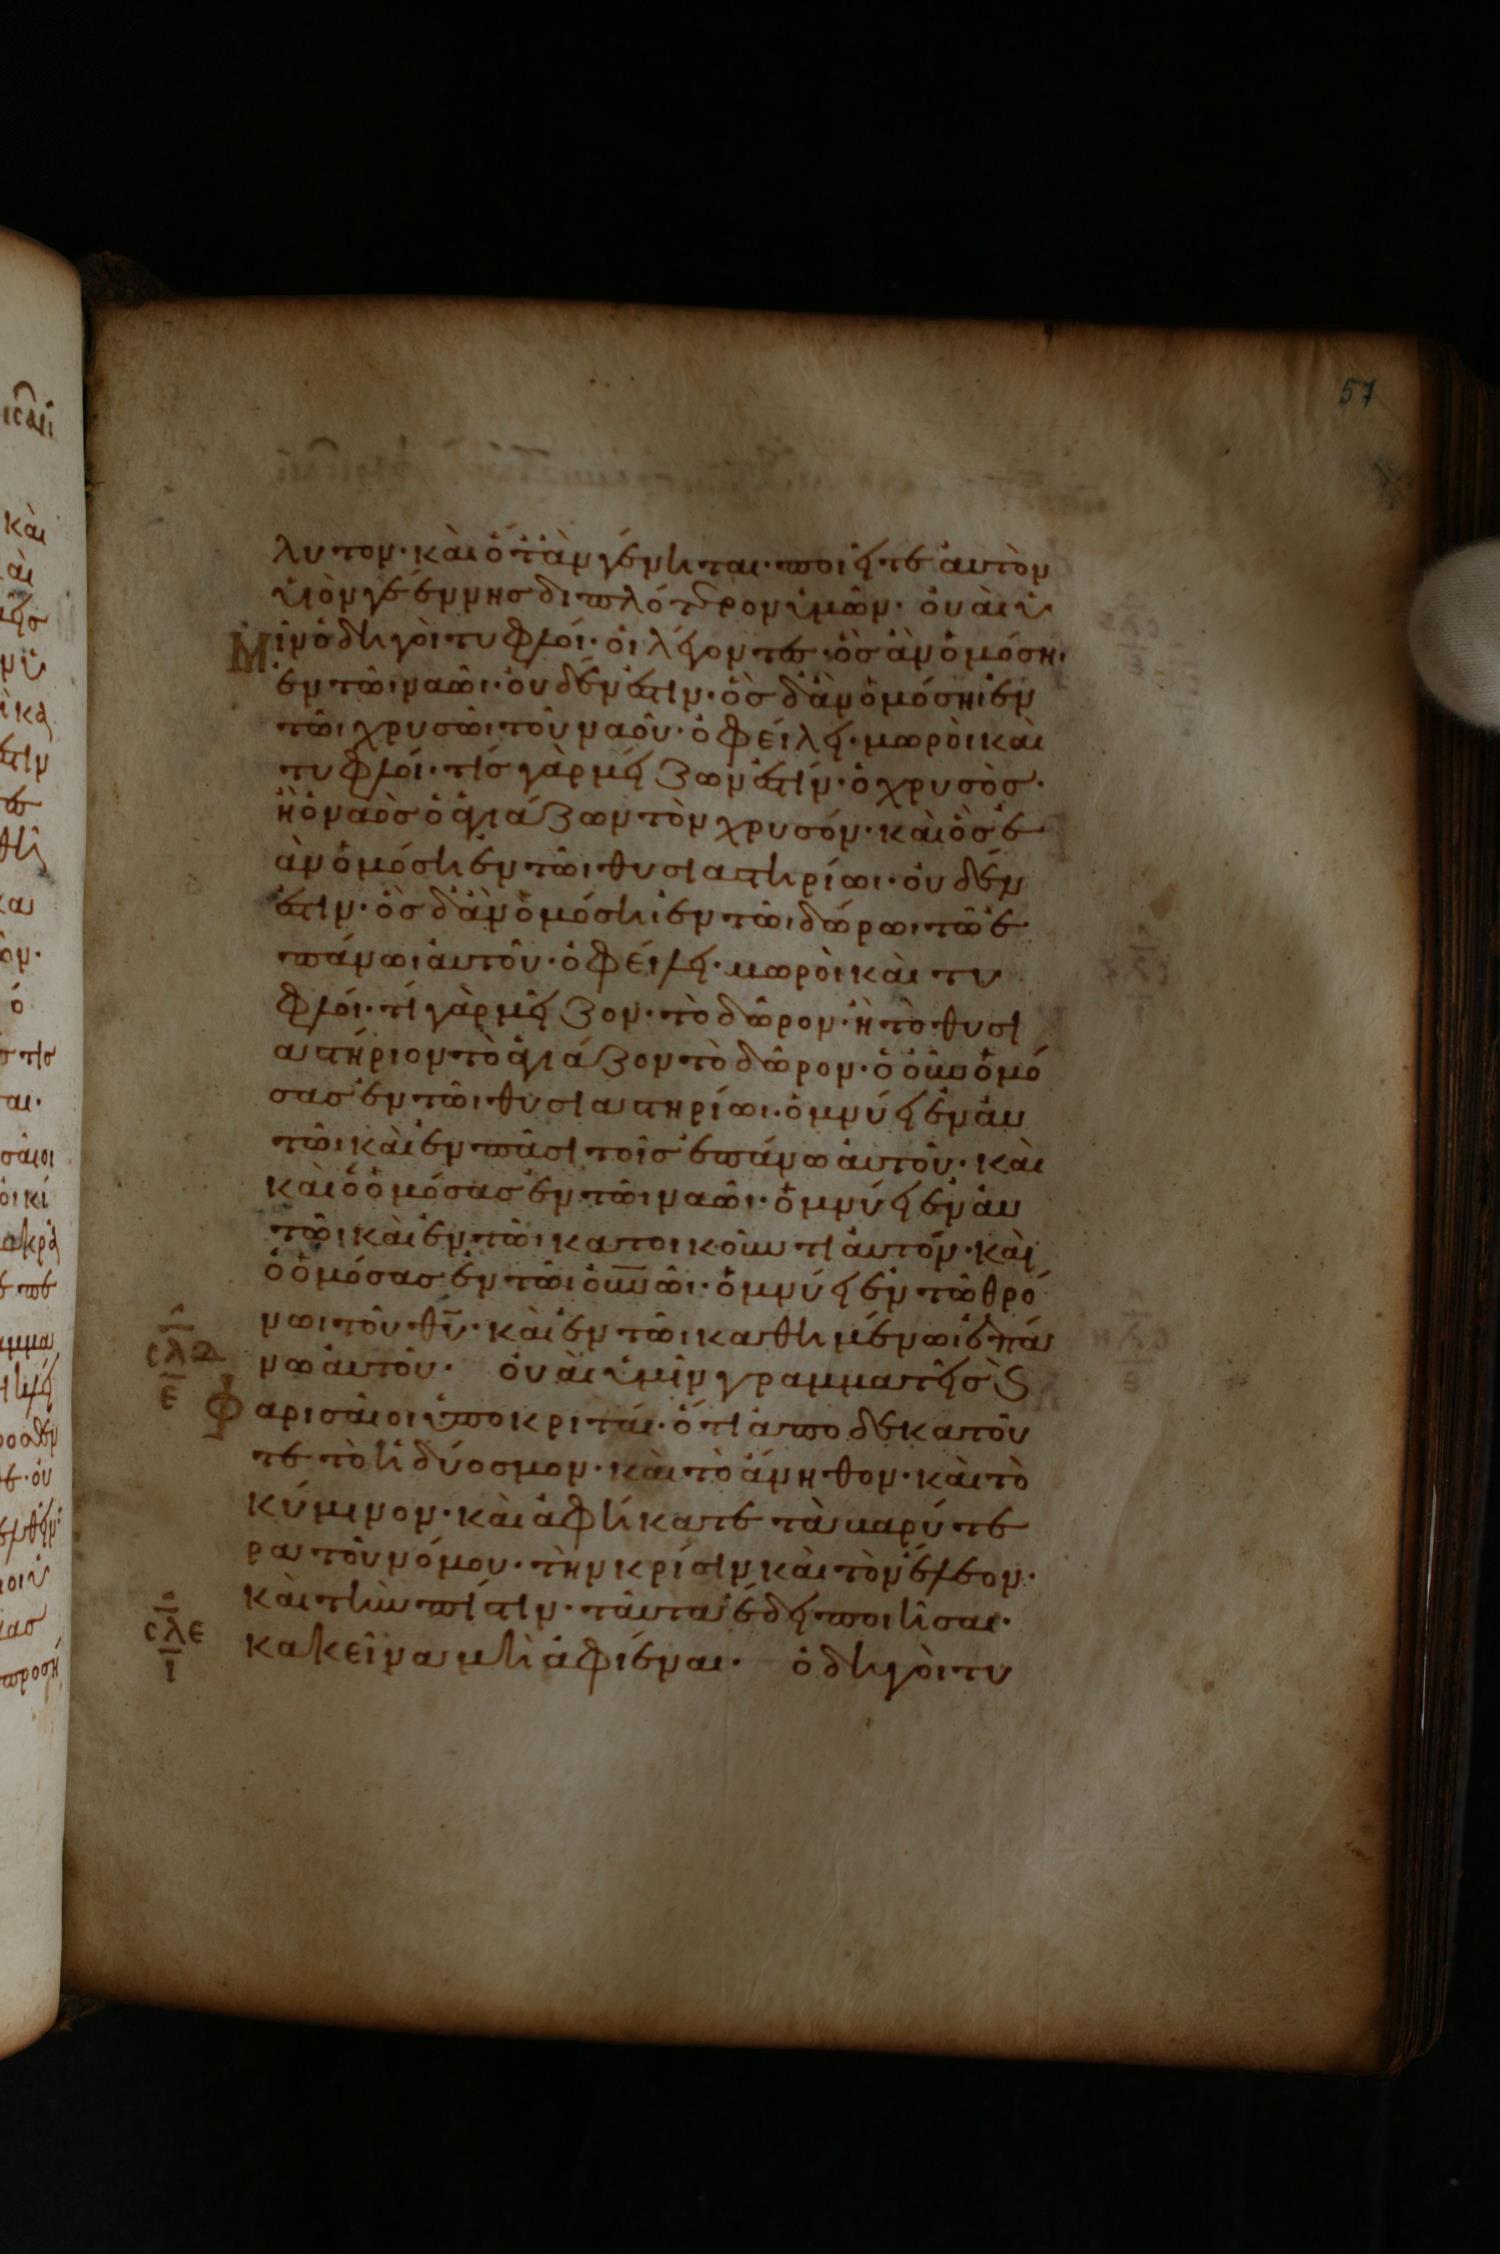 57
λυτον· καὶ ὅταν γένηται· ποιεῖτε ἀυτὸν
ὑιὸν γεέννησ διπλότερον ὑμῶν· ὀυαὶ ὑ
Μῖν ὁδηγοὶ τυφλοί· ὁι λέγοντεσ· ὃσ ἂν ὀμόση·
ἐν τῶι ναῶι· ὀυδέν ἐστιν· ὃσ δ' ἂν ὀμόσηι ἐν
τῶι χρυσῶι τοῦ ναοῦ· ὀφείλει· μωροὶ καὶ
τυφλοί· τίσ γὰρ μείζων ἐστίν· ὁ χρυσὸσ·
ἢ ὁ ναὸσ ὁ ἁγιάζων τὸν χρυσόν· καὶ ὃσ ἐ
ὰν ὀμόσηι ἐν τῶι θυσιαστηρίωι· ὀυδέν
ἐστιν· ὃσ δ' ἂν ὀμόσηι ἐν τῶι δώρωι τῶ ἐ
πάνωι ἀυτοῦ· ὀφείλει· μωροὶ καὶ τυ
φλοί· τί γὰρ μεῖζον· τὸ δῶρον· ἢ τὸ θυσι
αστήριον τὸ ἁγιάζον τὸ δῶρον· ὁ οὖν ὀμό
σασ ἐν τῶι θυσιαστηρίωι· ὀμνύει ἐν ἀυ
τῶι καὶ ἐν πᾶσι τοῖσ ἐπάνω ἀυτοῦ· καὶ
καὶ ὁ ὀμόσασ ἐν τῶι ναῶι· ὀμνύει ἐν ἀυ
τῶι καὶ ἐν τῶι κατοικοῦντι ἀυτόν· καὶ
ὁ ὀμόσασ ἐν τῶι ὀυνῶι· ὀμνύει ἐν τῶ θρό
νωι τοῦ θυ· καὶ ἐν τῶι καθημένωι ἐπά
νω ἀυτοῦ· ὀυαὶ ὑμῖν γραμματεῖσ ϗ
Φαρισαῖοι ὑποκριταί· ὅτι ἀποδεκατοῦ
τε τὸ ἡδύοσμον· καὶ τὸ ἄνηθον· καὶ τὸ
κύμινον· καὶ ἀφήκατε τὰ βαρύτε
ρα τοῦ νόμου· τὴν κρίσιν καὶ τὸν ἔλεον·
καὶ τὴν πίστιν· ταῦτα ἔδει ποιῆσαι·
κακεῖνα μὴ ἀφιέναι· ὁδηγοὶ τυ
σλδ
ε
σλε
ι